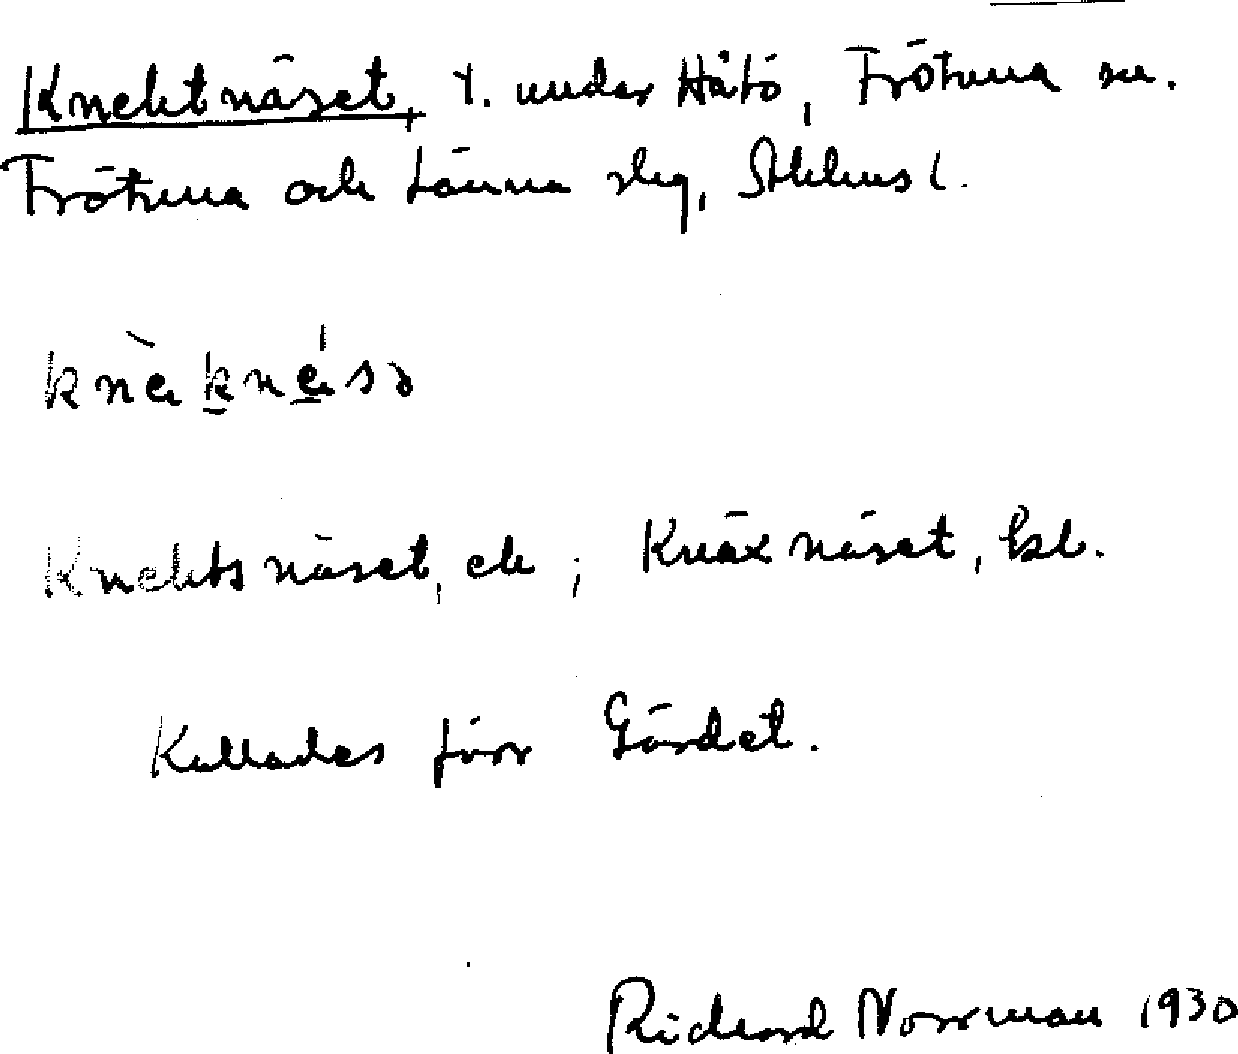 Knektnäset, t. under Håtö, Frötuna sn.
Frötuna och Länna skg, Sthlms l.
Knektsnäset, ek ; Knäxnäset, bl.
Kallades förr Gärdet.
Richard Norrman 1930